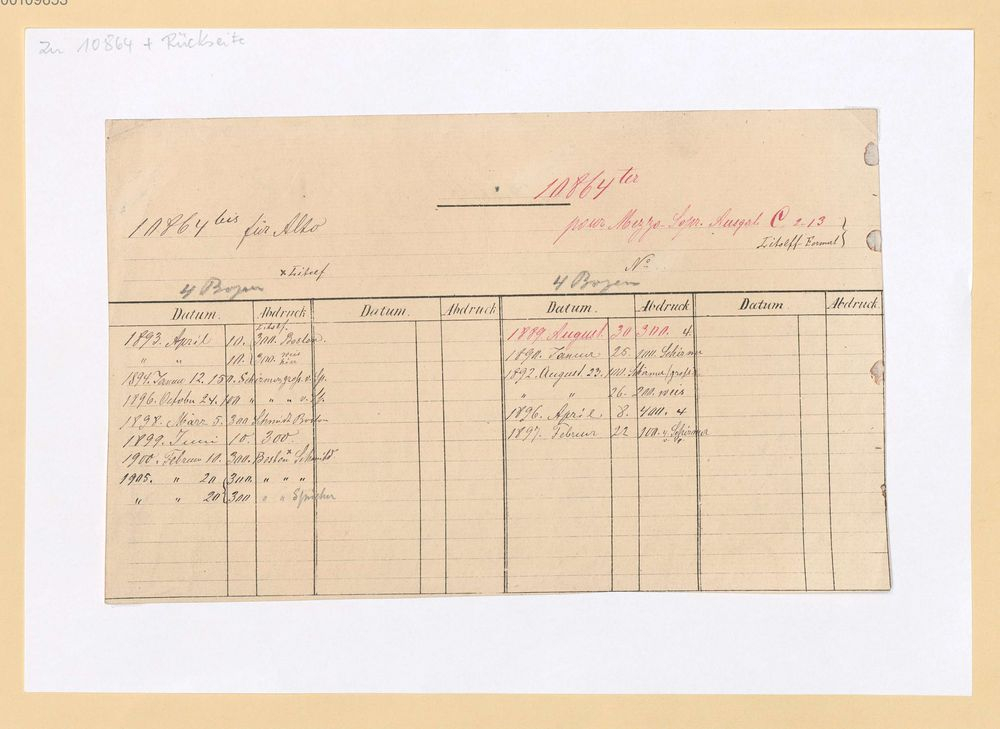 Zu 10864 + Rückseite
10864 ter
10864 bis für Alto
pour Mezzo-Sopr. Ausgab. C 2-13
Litolff-Format
No
x Litolf
4 Bogen
4 Bogen
Datum. Abdruck Datum. Abdruck Datum. Abdruck Datum. Abdruck.
Litolf.
1893. April 10. 300. Boston.
" " 10. 300.
1894. Januar 12. 150. Schirmer
1896. October 24. 100 " " "
1898. März 5. 300 Schmidt Boston
1899. Juni 10. 300
1900. Februar 10. 300. Boston x Schmidt.
1905. " 20 300. " " "
" " 20 300 " "
1889. August 30 300. 4.
1890. Januar 25. 100. Schirmer
1892. August 23. 100. Schirmer
" " 26. 200.
1896. April 8. 400. 4
1897. Februar 22 100. v. Schirmer